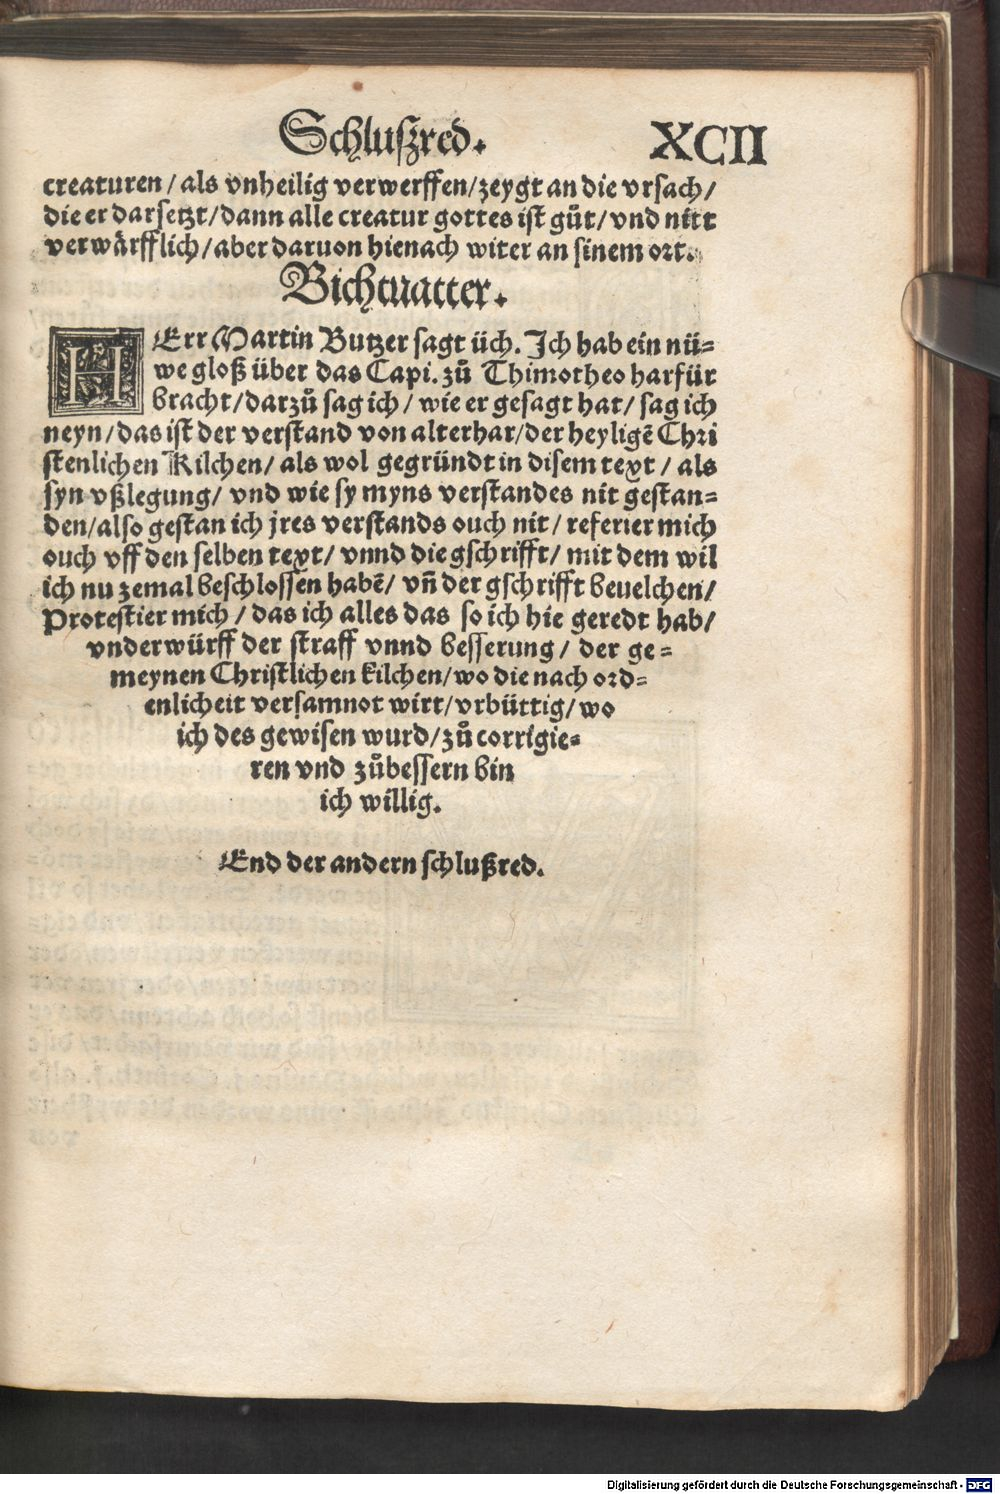 Schluſzred.
XCII
creaturen / als vnheilig verwerffen / zeygt an die vrſach /
die er darſetzt / dann alle creatur gottes iſt gůt / vnd nitt
verwaͤrfflich / aber daruon hienach witer an ſinem ort.
Bichtuatter.
HErr Martin Butzer ſagt üch. Ich hab ein nü⸗
we gloß über das Capi. zů Thimotheo harfür
bracht / darzů ſag ich / wie er geſagt hat / ſag ich
neyn / das iſt der verſtand von alterhar / der heyligẽ Chri
ſtenlichen Kilchen / als wol gegründt in diſem text / als
ſyn vßlegung / vnd wie ſy myns verſtandes nit geſtan⸗
den / alſo geſtan ich jres verſtands ouch nit / referier mich
ouch vff den ſelben text / vnnd die gſchrifft / mit dem wil
ich nu zemal beſchloſſen habẽ / vñ der gſchrifft beuelchen /
Proteſtier mich / das ich alles das ſo ich hie geredt hab /
vnderwürff der ſtraff vnnd beſſerung / der ge⸗
meynen Chriſtlichen kilchen / wo die nach ord⸗
enlicheit verſamnot wirt / vrbüttig / wo
ich des gewiſen wurd / zů corrigie⸗
ren vnd zůbeſſern bin
ich willig.
End der andern ſchlußred.
Digitalisierung gefördert durch die Deutsche Forschungsgemeinschaft - DFG